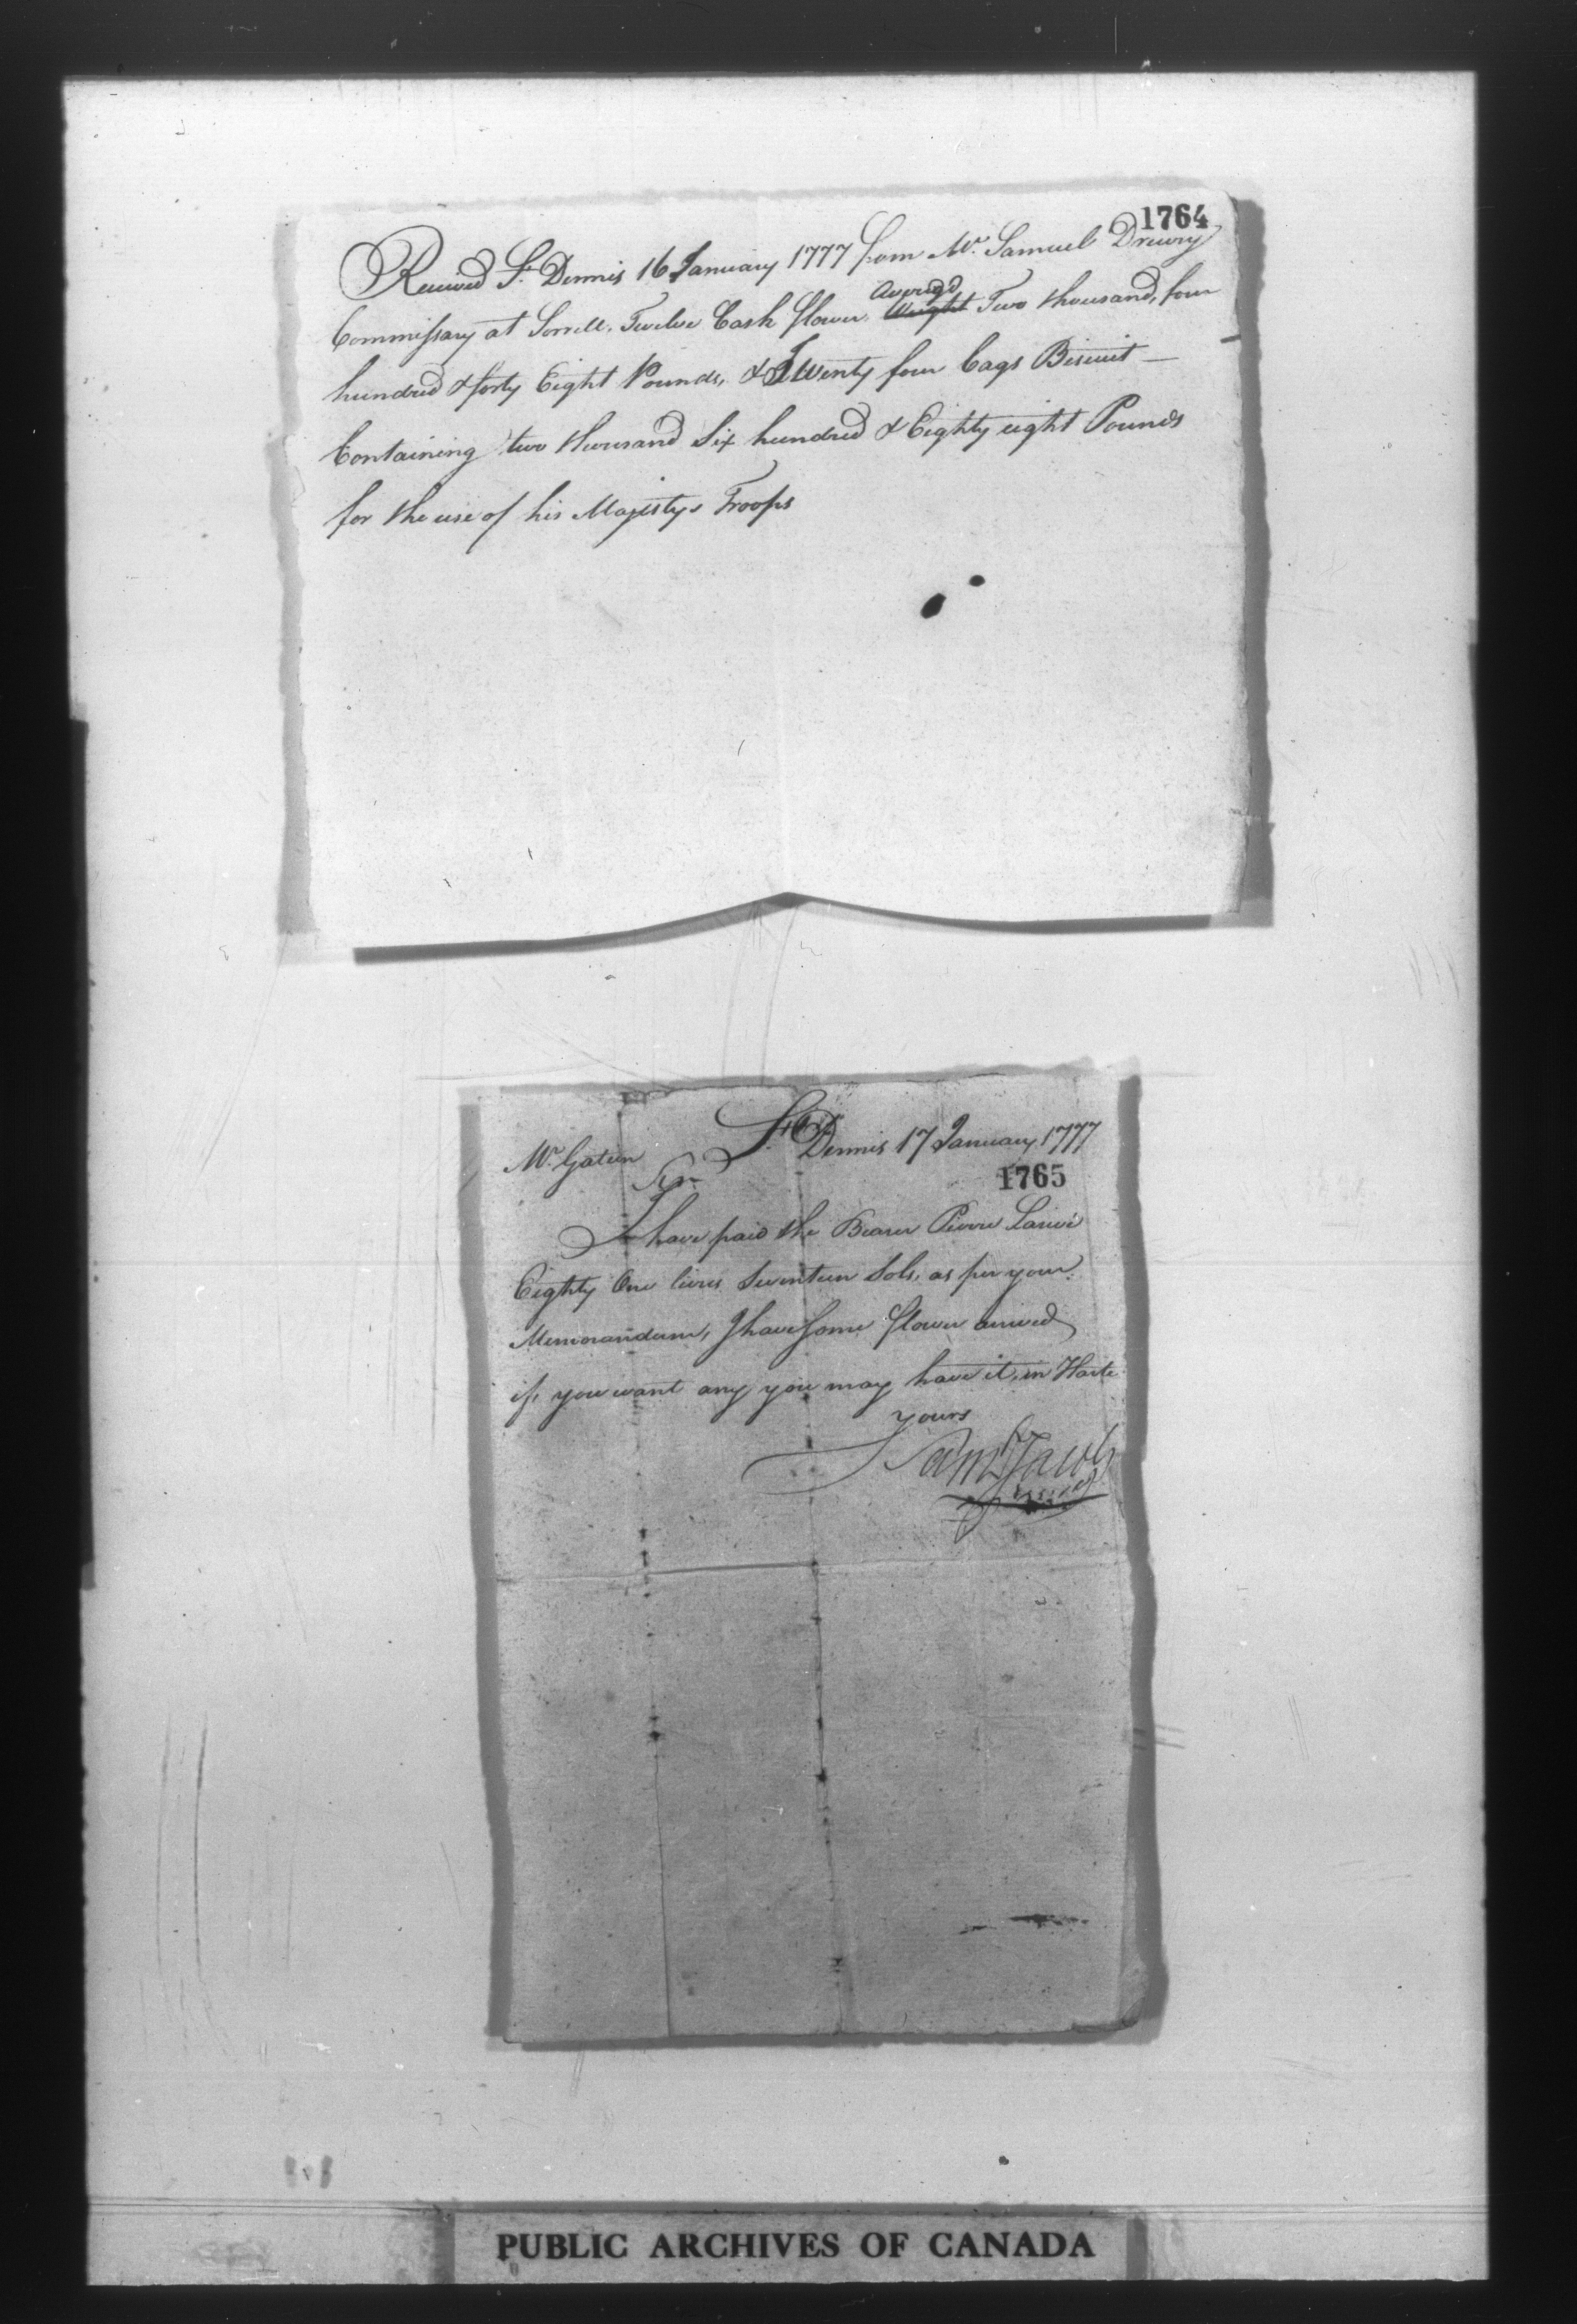 1764
Received St. Dennis 16 January 1777 from Mr. Samuel Drewry
Commissary at Sorrell, Twelve Cask flower, Averegd Weight Two thousand, four
hundred & forty Eight Pounds, & Twenty four bags Biscuit —
Containing two thousand Six hundred & Eighty eight Pounds
for the use of his Majestys Troops
St. Dennis 17 January 1777
Mr. Gatien
Sir
1765
I have paid the Bearer Pierre Larivé
Eighty One livres Seventeen Sols, as per your
Memorandum, I have Some flower arrived
if, you want any you may have it, in Haste
yours
Saml Jacobs
PUBLIC ARCHIVES OF CANADA